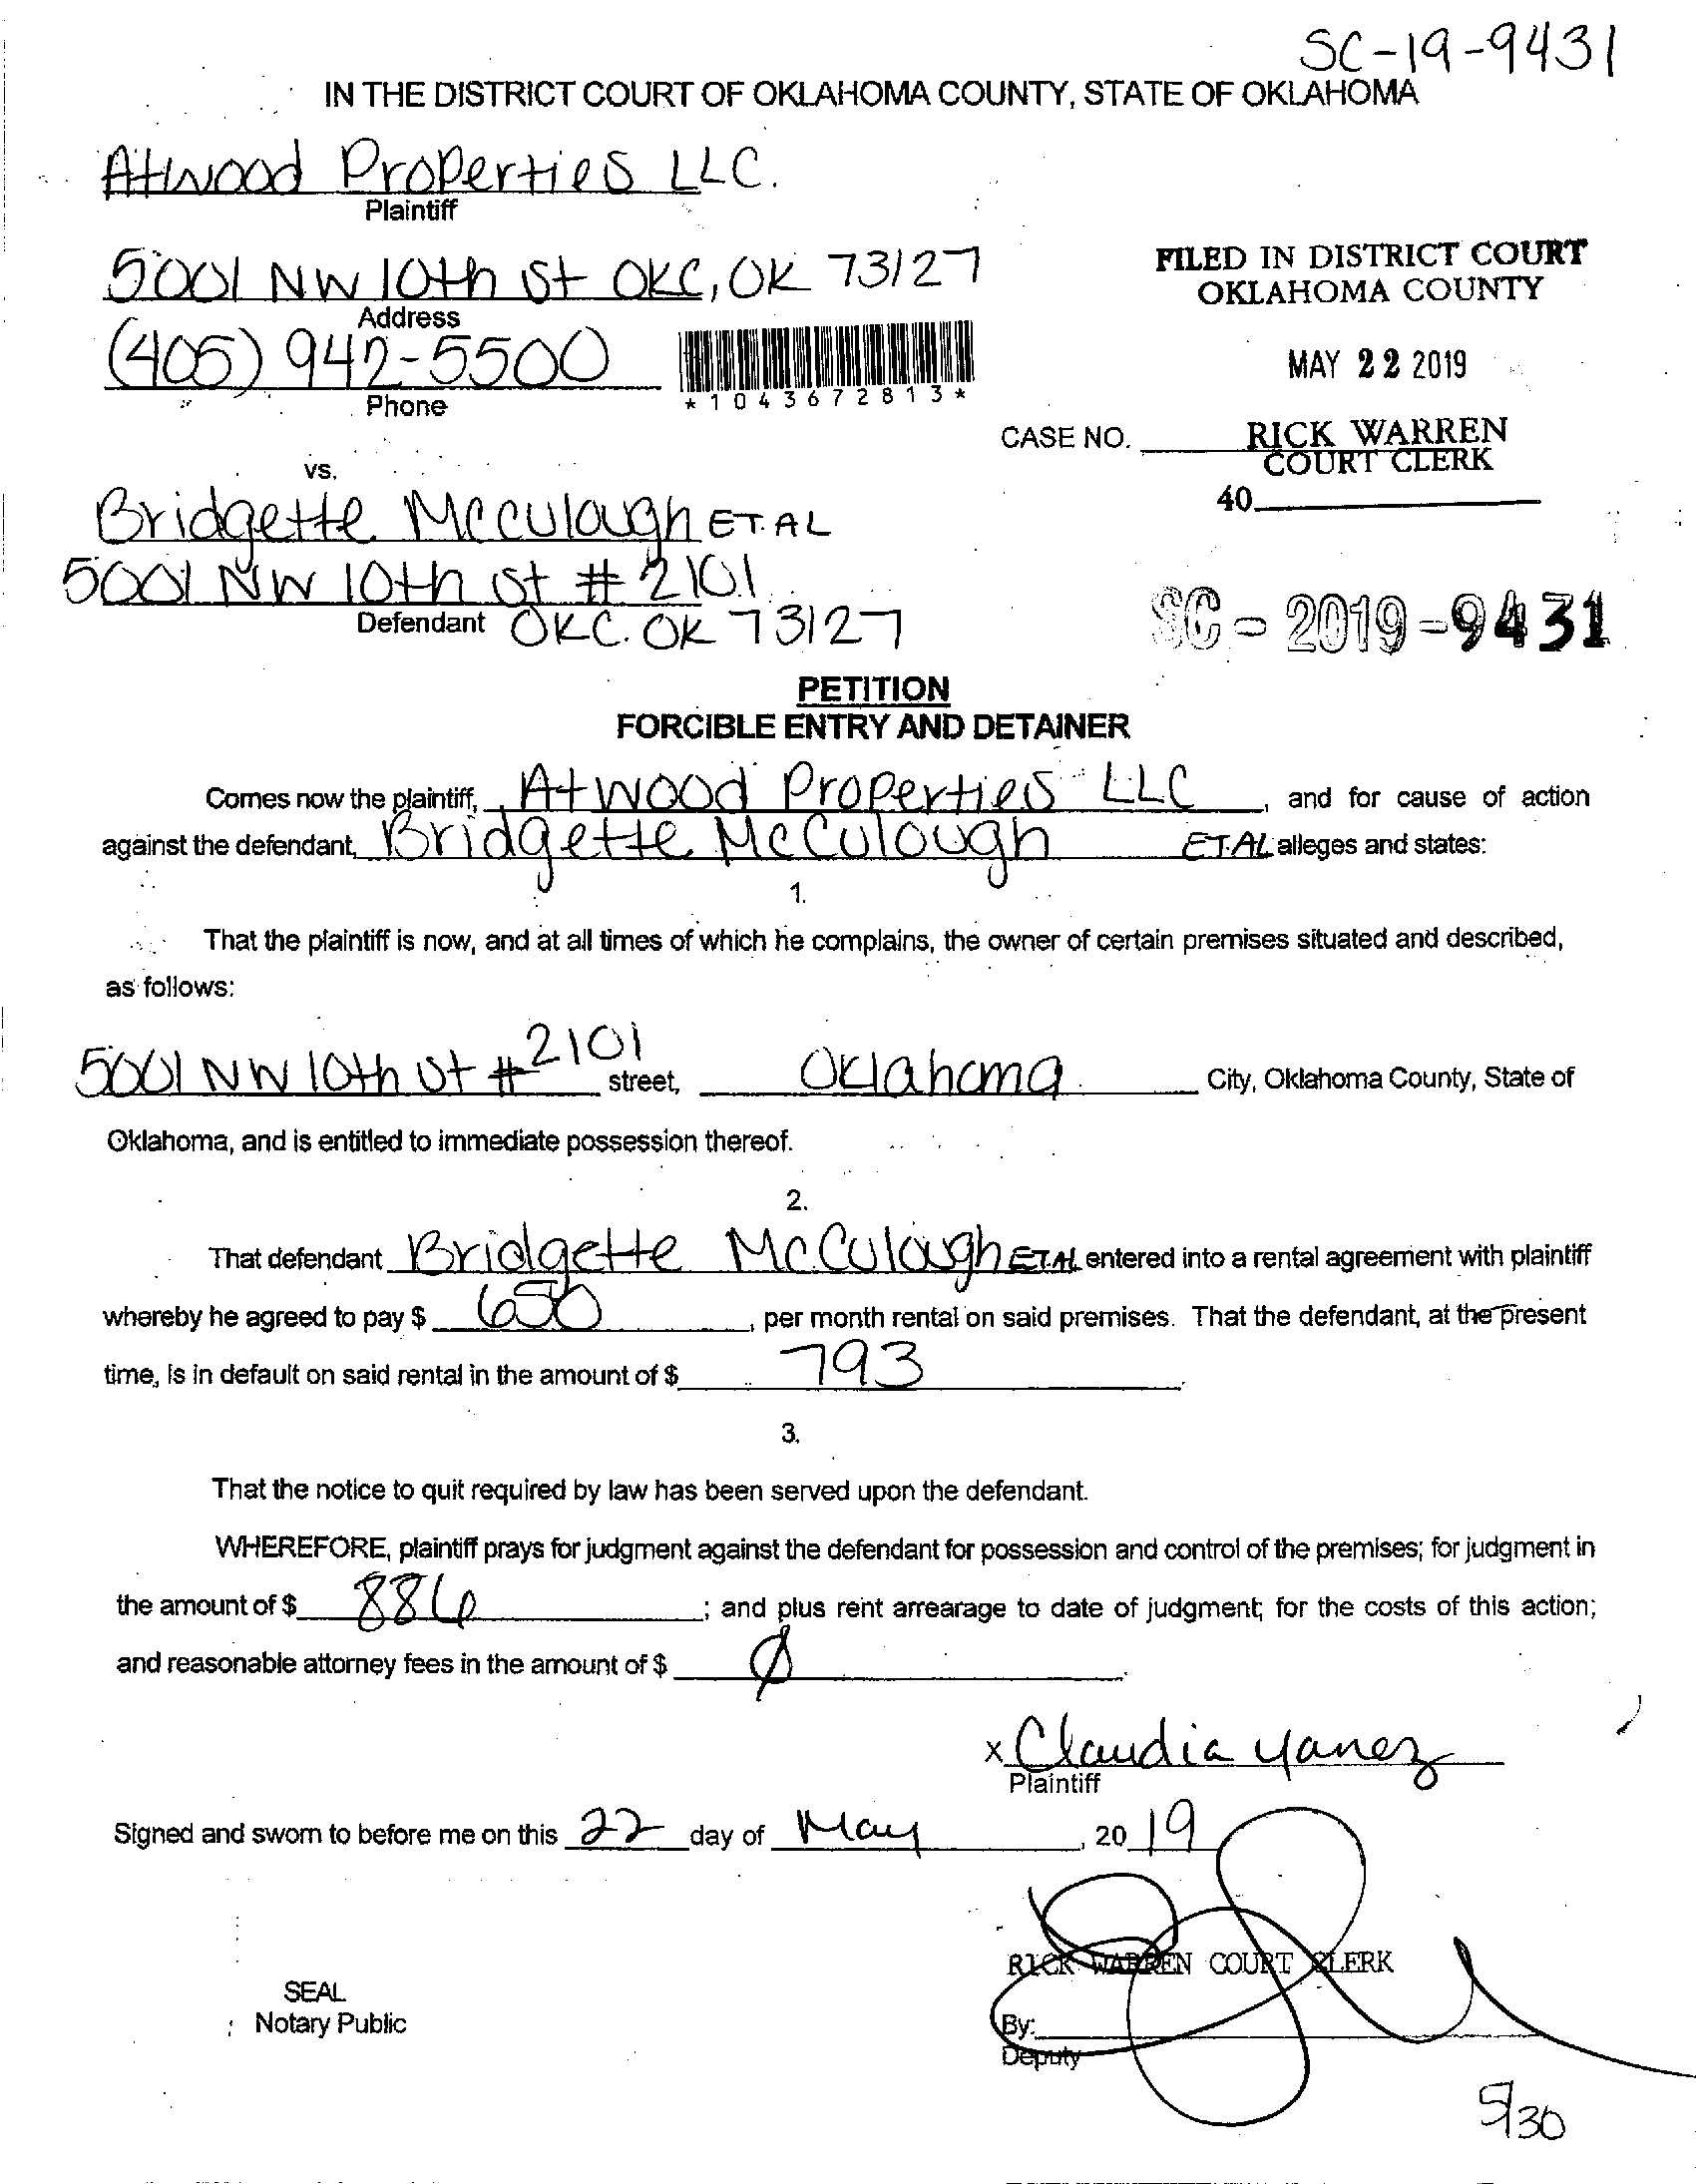 SC-19-9431
IN THE DISTRICT COURT OF OKLAHOMA COUNTY, STATE OF OKLAHOMA
Atwood Properties LLC.
Plaintiff
5001 NW 10th St OKC, OK 73127
Address
(405) 942-5500
Phone
*1043672813*
FILED IN DISTRICT COURT
OKLAHOMA COUNTY
MAY 22 2019
CASE NO. RICK WARREN
COURT CLERK
40
vs.
Bridgette Mcculough ET.AL
5001 NW 10th St # 2101
Defendant OKC. OK 73127
SC - 2019 - 9431
PETITION
FORCIBLE ENTRY AND DETAINER
Comes now the plaintiff, Atwood Properties LLC, and for cause of action
against the defendant, Bridgette McCulough ET.AL alleges and states:
1.
That the plaintiff is now, and at all times of which he complains, the owner of certain premises situated and described,
as follows:
5001 NW 10th St # 2101 street, Oklahoma City, Oklahoma County, State of
Oklahoma, and is entitled to immediate possession thereof.
2.
That defendant Bridgette McCulough ET.AL entered into a rental agreement with plaintiff
whereby he agreed to pay $ 650, per month rental on said premises. That the defendant, at the present
time, is in default on said rental in the amount of $ 793
3.
That the notice to quit required by law has been served upon the defendant.
WHEREFORE, plaintiff prays for judgment against the defendant for possession and control of the premises; for judgment in
the amount of $ 886; and plus rent arrearage to date of judgment; for the costs of this action;
and reasonable attorney fees in the amount of $ Ø
x Claudia Yanez
Plaintiff
Signed and sworn to before me on this 22 day of May, 20 19
RICK WARREN COURT CLERK
SEAL
Notary Public
By:
Deputy
5/30